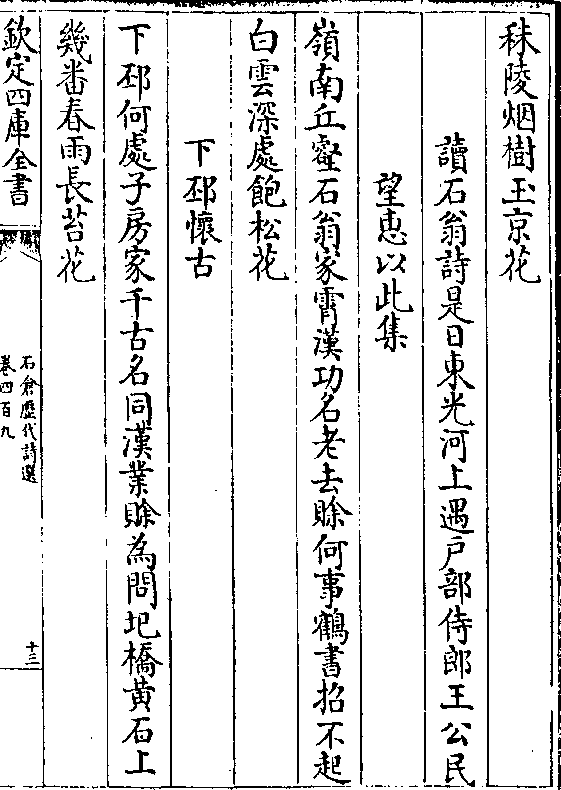 秣陵烟樹玉京花
讀石翁詩是日東光河上遇戸部侍郎王公民
望惠以此集
嶺南丘壑石翁家霄漢功名老去賖何事鶴書招不起
白雲深處飽松花
下邳懷古
下邳何處子房家千古名同漢業賖為問圯橋黄石上
幾番春雨長苔花
欽定四庫全書
石倉歷代詩選
卷四百九
十三